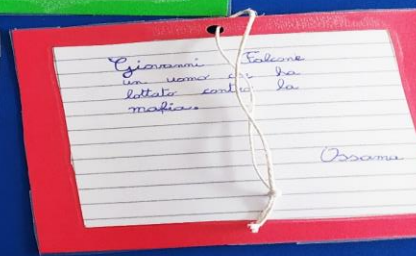 Giovanni Falcone
un uomo ha
lottato contro la
mafia.
Ossama